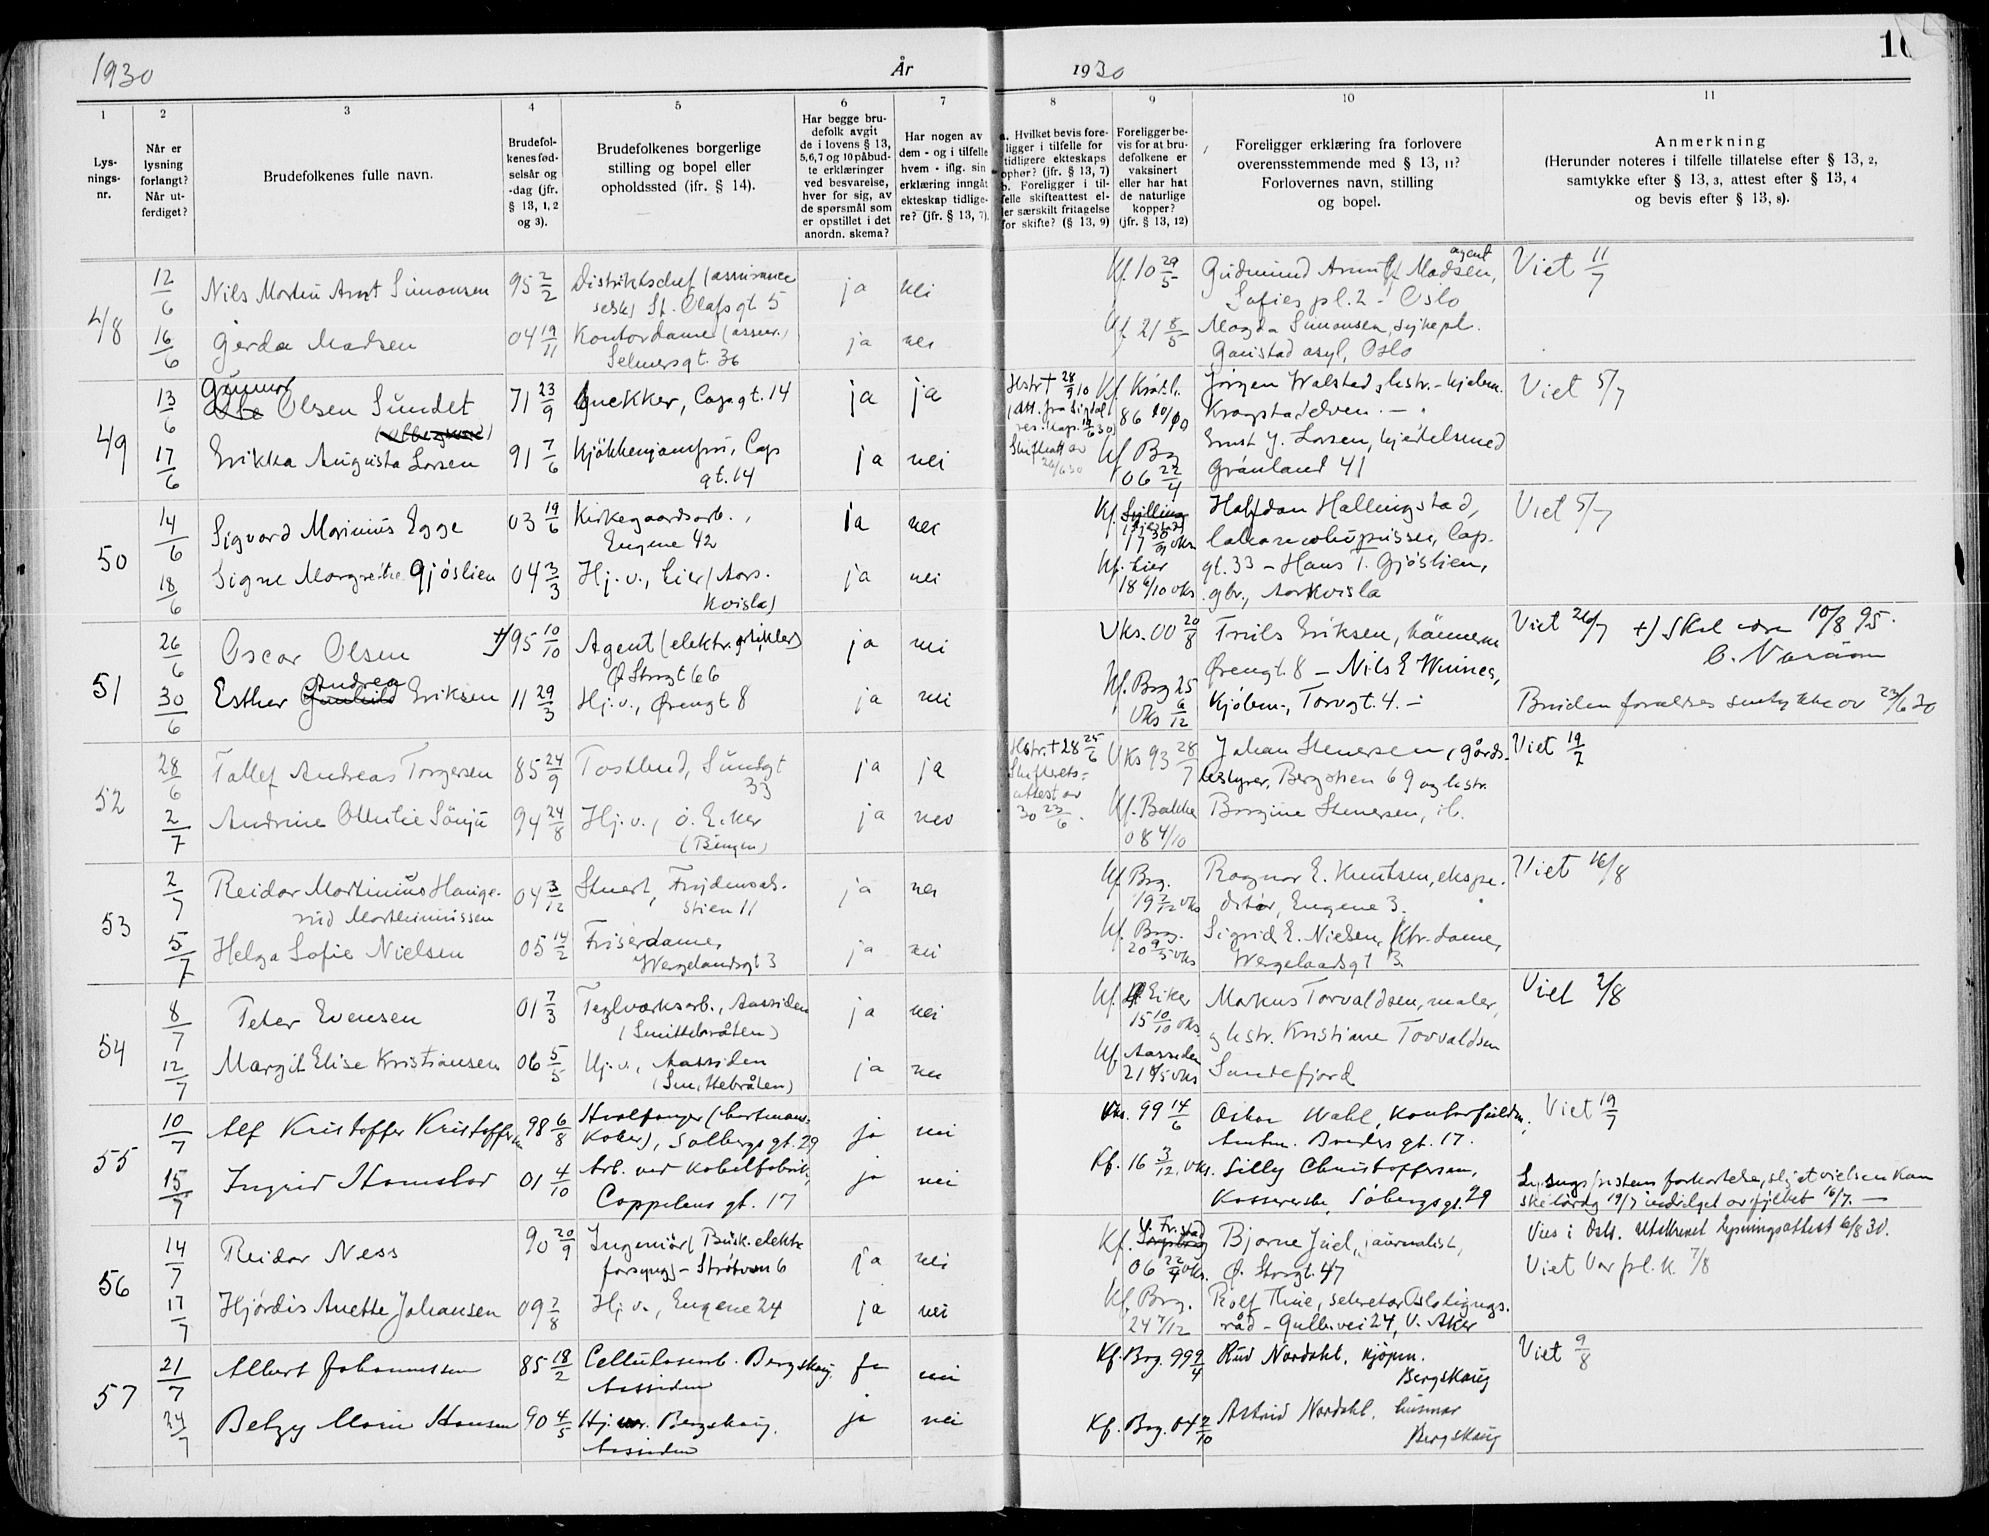 1930 År 1930 10
1 2 3 4 5 6 7 8 9 10 11
Lys-
nings-
nr.
Når er
lysning
forlangt?
Når ut-
ferdiget?
Brudefolkenes fulle navn.
Brudefol-
kenes fød-
selsår og
-dag (jfr.
§ 13, 1, 2
og 3).
Brudefolkenes borgerlige
stilling og bopel eller
opholdssted (ifr. § 14).
Har begge bru-
defolk avgit
de i lovens § 13,
5,6,7 og 10 påbud-
te erklæringer
ved besvarelse,
hver for sig, av
de spørsmål som
er opstillet i det
anordn. skema?
Har nogen av
dem - og i tilfelle
hvem - iflg. sin
erklæring inngåt
ekteskap tidlige-
re? (jfr. § 13, 7).
a. Hvilket bevis fore-
ligger i tilfelle for
tidligere ekteskaps
ophør? (jfr. § 13, 7)
b. Foreligger i til-
felle skifteattest el-
ler særskilt fritagelse
for skifte? (§ 13, 9)
Foreligger be-
vis for at bru-
defolkene er
vaksinert
eller har hat
de naturlige
kopper?
(jfr. § 13, 12)
Foreligger erklæring fra forlovere
overensstemmende med § 13, 11?
Forlovernes navn, stilling
og bopel.
Anmerkning
(Herunder noteres i tilfelle tillatelse efter § 13, 2,
samtykke efter § 13, 3, attest efter § 13, 4
og bevis efter § 13, 8).
48
12/6 Nils Morten Arnt Simonsen 95 2/2 Distriktschef (assurance
selsk) St. Olafs gt 5 ja nei Kf. 10 29/5 Gudmund Arnulf Madsen, agent
Sofies pl. 2 - Oslo Viet 11/7
16/6 Gerda Madsen 04 19/11 Kontordame (assur.)
Selmersgt. 36 ja nei Kf. 21 8/5 Magda Simonsen, sykepl.
Gaustad asyl, Oslo
49
13/6 Gunnar
Olsen Sundet 71 23/9 Snekker, Capgt. 14 ja ja Hstr † 28/9 10
(att. fra Sigdal Kf. Krødsh.
86 10/10 Jørgen Walstad, hstr. - kjøbm.
Krogstadelven Viet 5/7
17/6 Erikka Augusta Larsen 91 7/6 Kjøkkenjomfru, Cap
gt. 14 ja nei Skifteatt av
24/6 30 Kf Brg
06 22/4 Ernst J. Larsen, kjedelsmed
Grønland 41
50
14/6 Sigvard Marinius Egge 03 19/6 Kirkegaardsarb.,
Engene 42 ja nei Kf. 17 30/9 vks Halfdan Hallingstad, Cap.
gt. 33 - Hans T. Gjøslien, Viet 5/7
18/6 Signe Margrethe Gjøslien 04 3/3 Hj. v., Lier (Aors-
kvisla) ja nei Kf. Lier
18 6/10 vks gbr., Aorkvisla
51
26/6 Oscar Olsen +) 95 10/10 Agent (elektr. artikler)
Ø Storgt 66 ja nei Vks. 00 20/8 Truls Eriksen,
Ørengt. 8 - Nils E Winnes, Viet 26/7 +) Skal være 10/8 95.
30/6 Esther Andrea
Gunhild Eriksen 11 29/3 Hj. v., Ørengt 8 ja nei Kf. Brg 25
Vks 6/12 Kjøbm., Torvgt. 4. Brudens forældres samtykke av 23/6 30
52
28/6 Tallef Andreas Torgersen 85 24/9 Tostbud, Sundgt
33 ja ja Hstr. † 28 25/6
Skifterets-
attest av
30 23/6 Vks 93 28/7 Johan Stenersen, gårds-
bestyrer, Bergstien 69 og hstr. Viet 19/7
2/7 Andrine Ottilie Sønju 94 24/8 Hj. v., ø. Eiker
(Bingen) ja nei Kf. Bakke
08 4/10 Borgine Stenersen, ib.
53
2/7 Reidar Martinius Hauge-
rud Marthinussen 04 3/12 Stuert, Frydensals-
stien 11 ja nei Kf Brg.
19 7/12 vks Ragnar E. Knutsen, ekspe-
ditør, Engene 3. Viet 16/8
5/7 Helga Sofie Nielsen 05 14/2 Friserdame,
Wergelandsgt 3 ja nei Kf. Brg.
20 9/5 vks Sigrid E. Nielsen, ktr. dame,
Wergelandsgt 3.
54
8/7 Peter Evensen 01 7/3 Teglverksarb., Aassiden
(Smittebråten) ja nei Kf Eiker
15 10/10 vks Markus Torvaldsen, maler, Viet 2/8
12/7 Margit Elise Kristiansen 06 5/5 Hj. v., Aassiden
(Smittebråten) ja nei Kf Aassiden
21 8/5 vks og hstr. Kristiane Torvaldsen
Sandefjord
55
10/7 Alf Kristoffer Kristoffersen 98 6/8 Hvalfanger
Solbergs gt. 29 ja nei Vks. 99 14/6 Oskar Wahl, Kontorfuldm.,
Anton. Brandts gt. 17. Viet 19/7
15/7 Ingrid Hamsbor 01 4/10 Arb. ved Kabelfabrik,
Coppelens gt. 17 ja nei Kf. 16 3/12. vks. Lilly Christoffersen,
Kassererske, Sobergsgt. 29 Lysningsfristens forkortelse, slik at vielsen kan
ske lørdag 19/7 indvilget av fylket 16/7.
56
14/7 Reidar Ness 90 20/9 Ingeniør (Busk. elektr.
forsyng) - Strøtvon 6 ja nei Kf. Fr.stad
06 22/4 vks. Bjarne Juel, journalist,
Ø. Storgt. 47 Vies i Oslo. Utskrevet lysningsattest 6/8 30.
Viet Var frl. k. 7/8
17/7 Hjørdis Anette Johansen 09 2/8 Hj. v., Engene 24 ja nei Kf. Brg.
24 7/12 Rolf Thue, sekretær Oslo lignings-
råd - Gullh.vei 24, V. Aker
57
21/7 Albert Johannessen 85 18/2 Cellulosearb. Bergskaug,
Aassiden ja nei Kf. Brg. 99 9/4 Rud Nordahl. kjøpm.
Bergskaug Viet 9/8
24/7 Betzy Marie Hansen 90 4/5 Hj. vær. Bergskaug,
Aassiden ja nei Kf. Brg. 04 2/10 Astrid Nordahl. husmor
Bergskaug